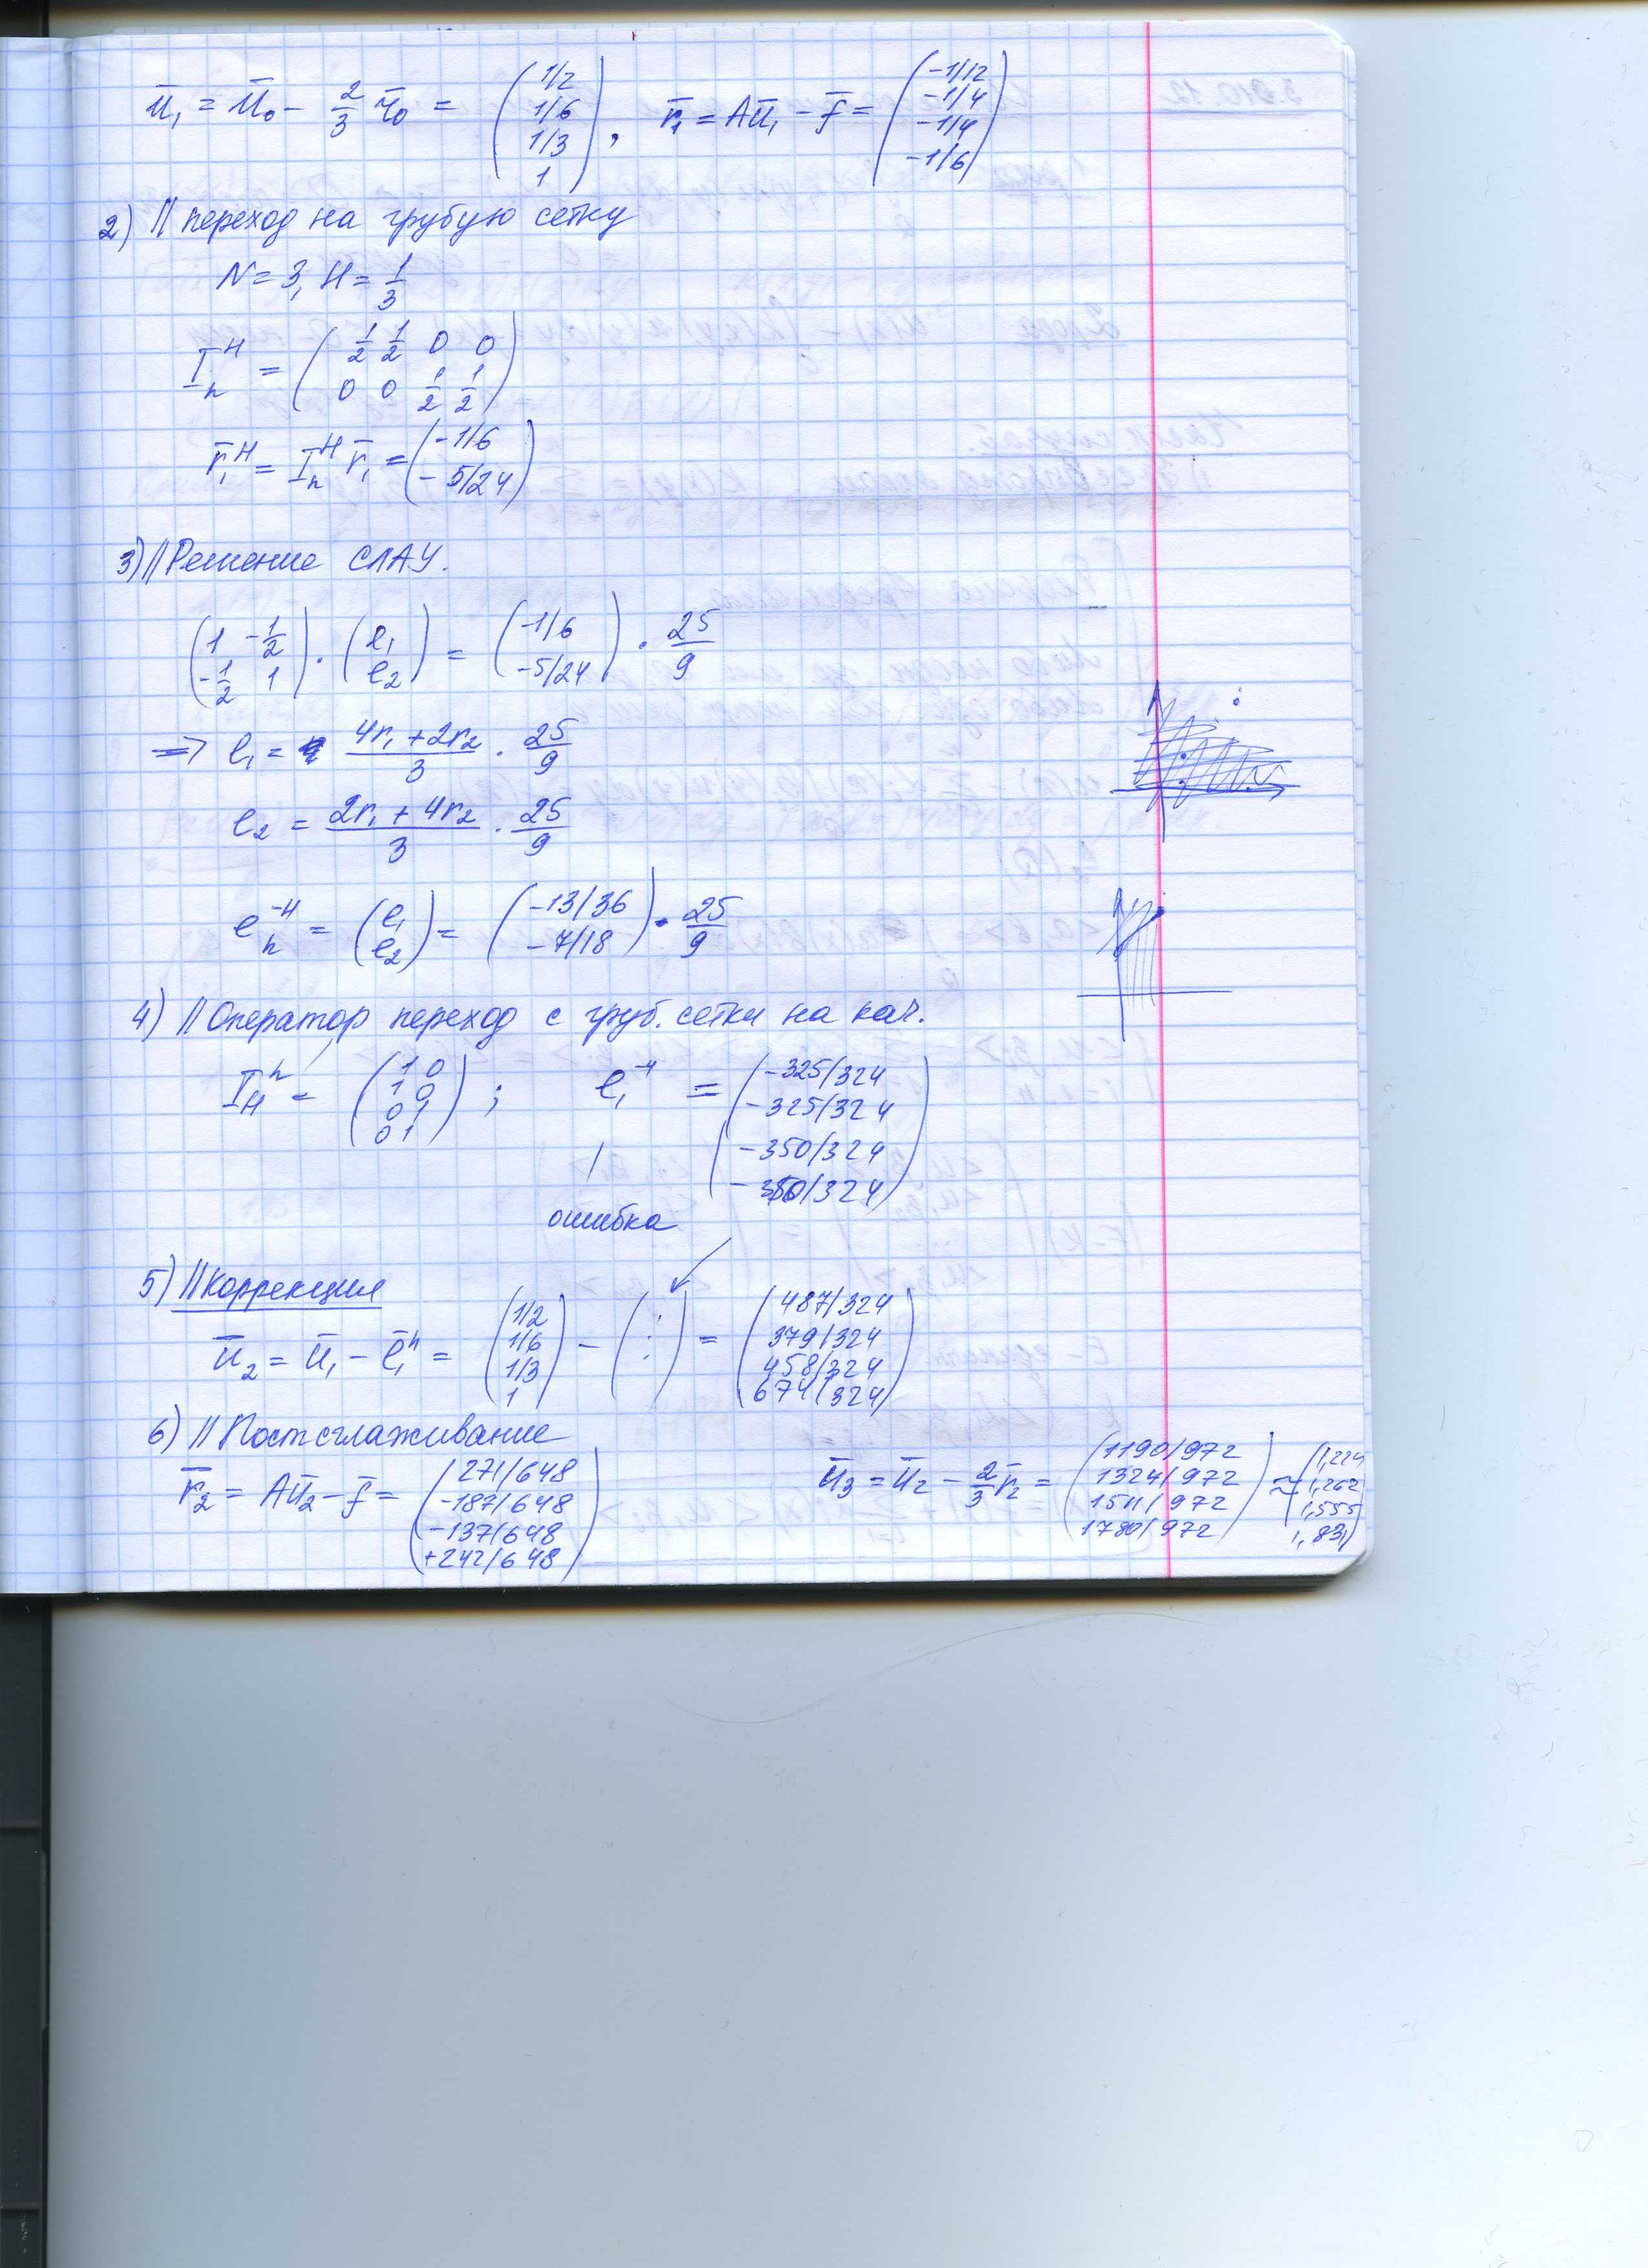 ū₁ = ū₀ - 2/3 r̄₀ = (1/2 1/6 1/3 1), r̄₁ = Aū₁ - f̄ = (-1/12 -1/4 -1/4 -1/6)
2) // переход на грубую сетку
N = 3, H = 1/3
I_h^H = (1/2 1/2 0 0
0 0 1/2 1/2)
r̄₁^H = I_h^H r̄₁ = (-1/6 -5/24)
3) // Решение СЛАУ.
(1 -1/2 -1/2 1) · (e₁ e₂) = (-1/6 -5/24) · 25/9
=> e₁ = (4r₁ + 2r₂)/3 · 25/9
e₂ = (2r₁ + 4r₂)/3 · 25/9
ē_h^H = (e₁ e₂) = (-13/36 -7/18) · 25/9
4) // Оператор переход с груб. сетки на кач.
I_H^h = (1 0 1 0 0 1 0 1); e₁^-h = (-325/324 -325/324 -350/324 -350/324)
ошибка
5) // Коррекция
ū₂ = ū₁ - ē₁^h = (1/2 1/6 1/3 1) - (⋮) = (487/324 379/324 458/324 674/324)
6) // Постсглаживание
r̄₂ = Aū₂ - f̄ = (271/648 -187/648 -137/648 +242/648)
ū₃ = ū₂ - 2/3 r̄₂ = (1190/972 1324/972 1511/972 1780/972) ≈ (1,224 1,262 1,555 1,831)